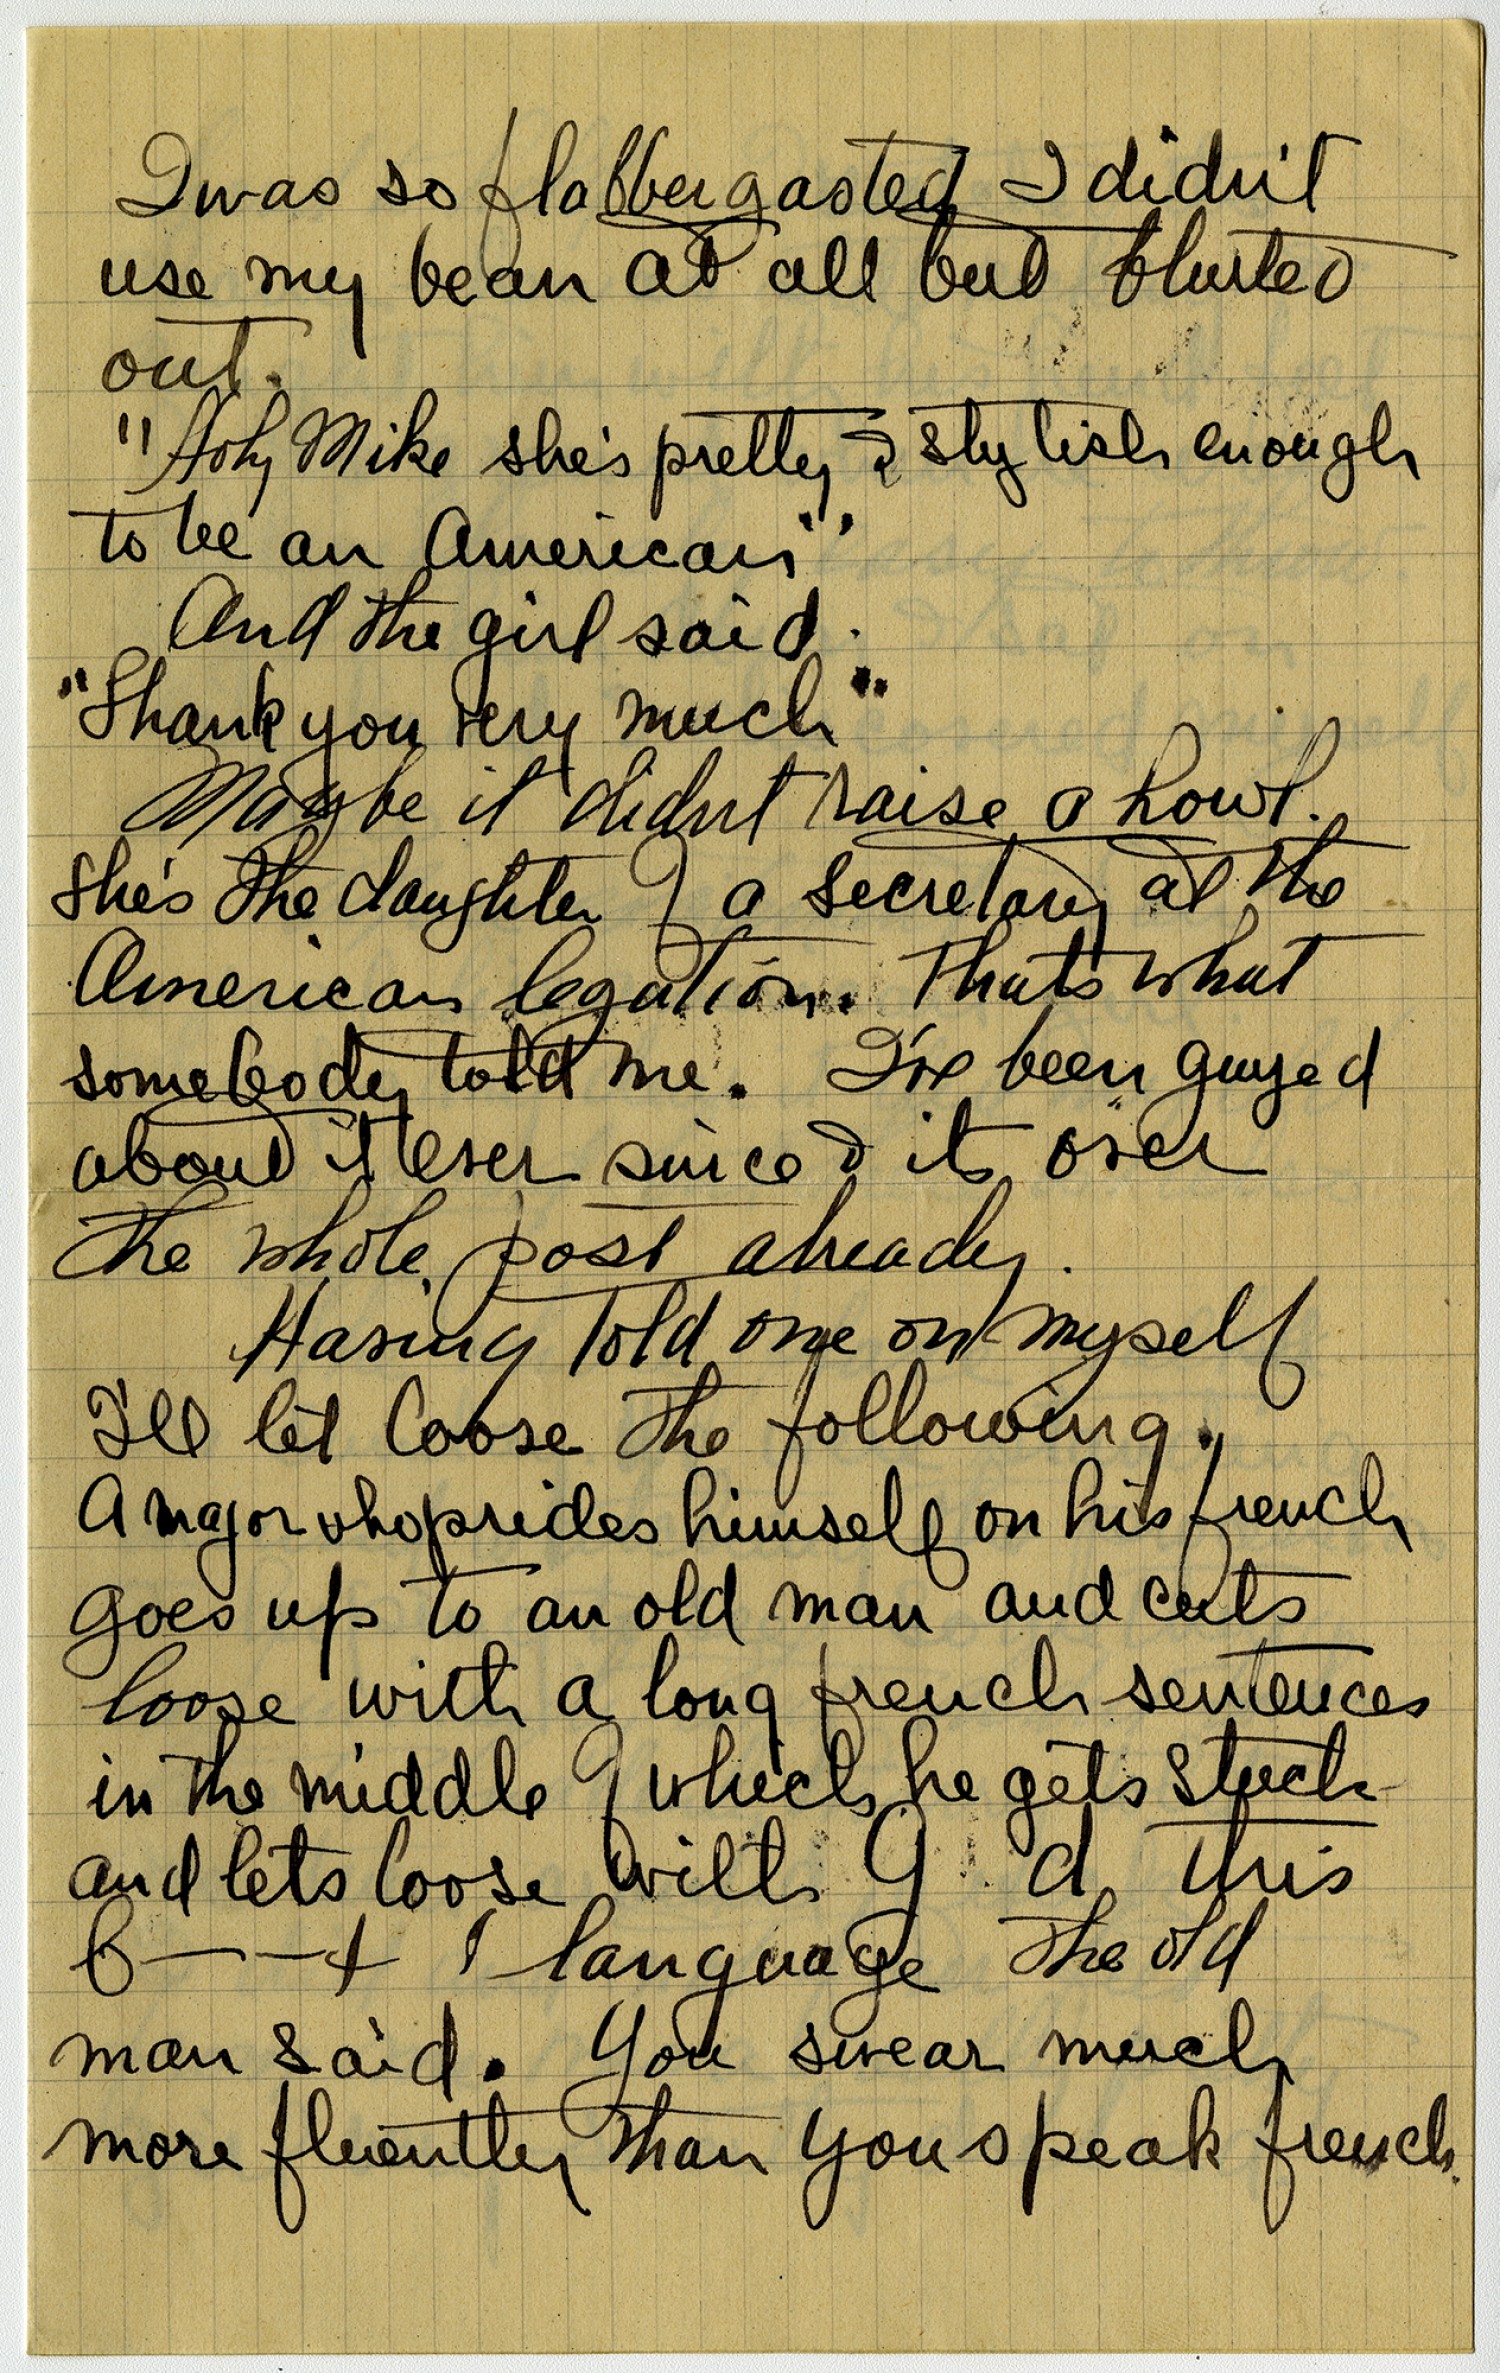 I was so flabbergasted I didn't
use my bean at all but blurted
out.
"Holy Mike she's pretty & stylish enough
to be an American"
And the girl said.
"Thank you very much"
Maybe it didn't raise a howl.
She's the daughter of a secretary at the
American legation. That's what
somebody told me. I've been guyed
about it ever since & its over
the whole post already.
Having told one on myself
I'll let loose the following.
A major who prides himself on his french
goes up to an old man and cuts
loose with a long french sentences
in the middle of which he gets stuck
and lets loose with G d this
b——t language The old
man said. You swear much
more fluently than you speak french.